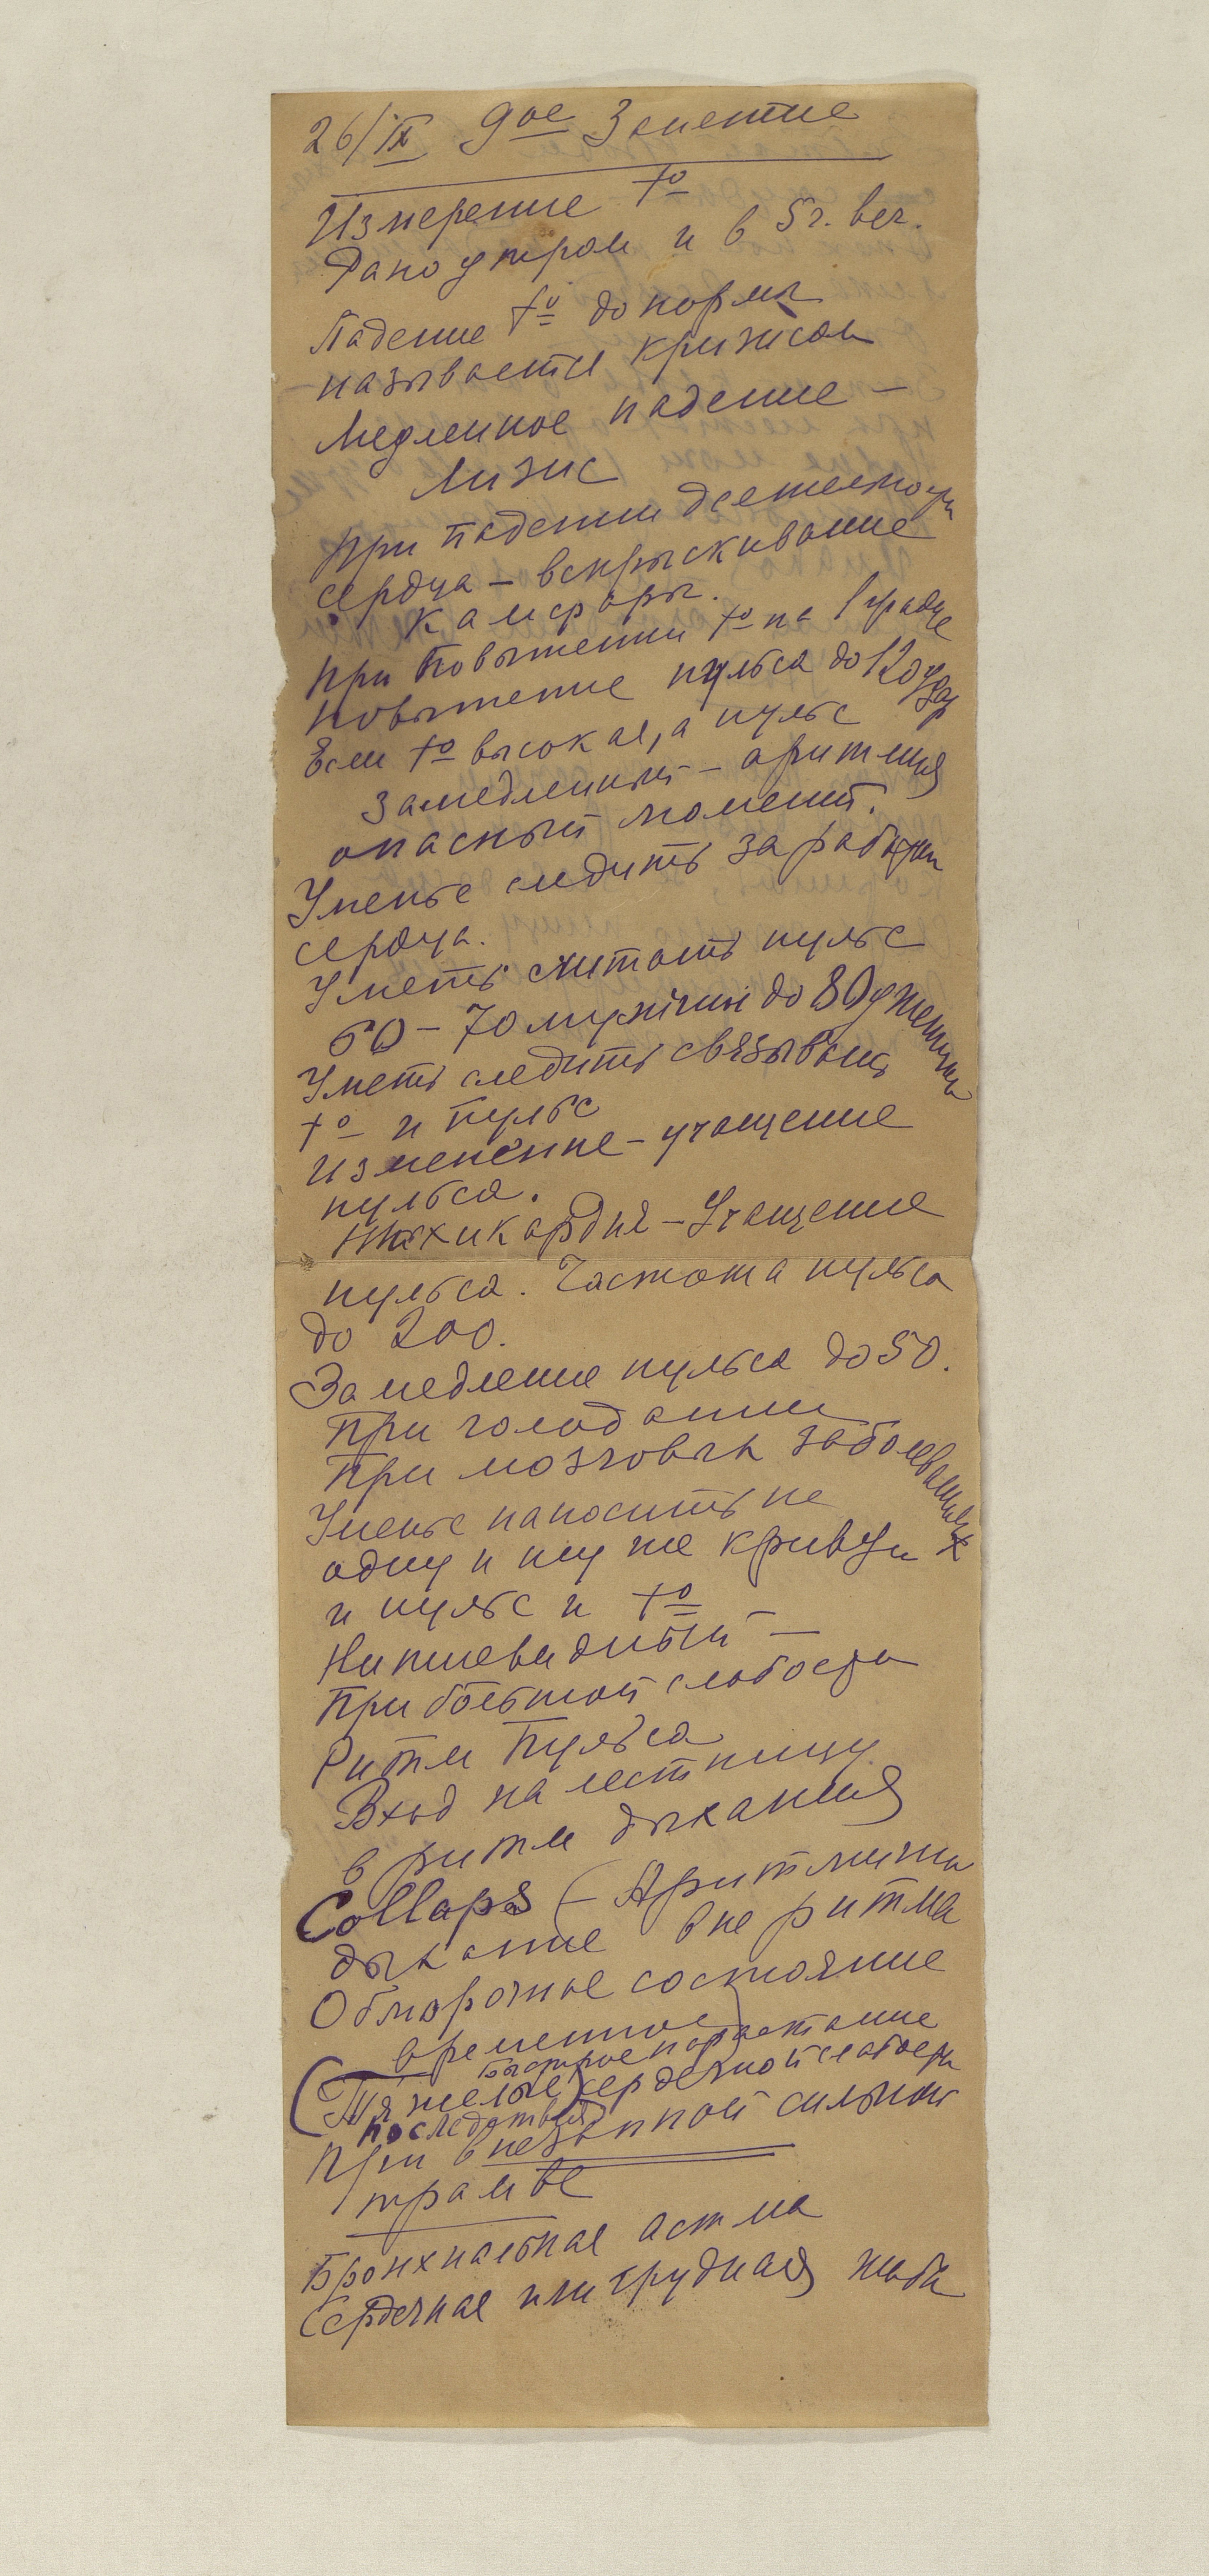 26/IX 9ое Занятие
Измерение tº
Рано утром и в 5 г. веч.
Падение tº до нормы
называется кризисом
Медленное падение –
Лизис
При падении деятельности
сердца – вспрыскивание
камфоры.
При повышении tº на 1 градус
повышение пульса до 120 удар
Если tº высокая, а пульс
замедленный – аритмия
опасный момент.
Уменье следить за работой
сердца.
Уметь считать пульс
60 – 70 мужчин до 80 у женщины
Уметь следить связывать
tº и пульс
Изменение – учащение
пульса.
Тахикардия – Учащение
пульса. Частота пульса
до 200.
Замедление пульса до 50.
При голодании
При мозговых заболеваниях
Уменье наносить на
одну и ту же кривую
и пульс и tº
Нитевидный –
При большой слабости
Ритм Пульса
Вход на лестницу
в ритм дыхания
Collaps (– Аритмичн
дыхание вне ритма
Обморочное состояние
временное)
быстрое нарастание
(Тяжелые) сердечной слабости
последствия
При внезапной сильной
травме
Бронхиальная астма
Сердечная или грудная жаба